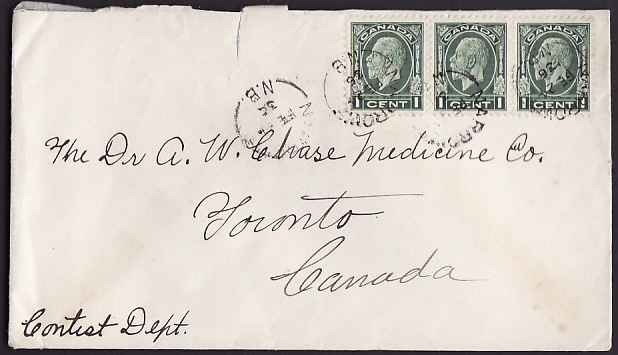 CANADA CANADA CANADA
1 CENT 1 1 CENT 1 1 CENT 1
N.B
34
N.B
The Dr A. W. Chase Medicine Co.
Toronto
Canada
Contest Dept.